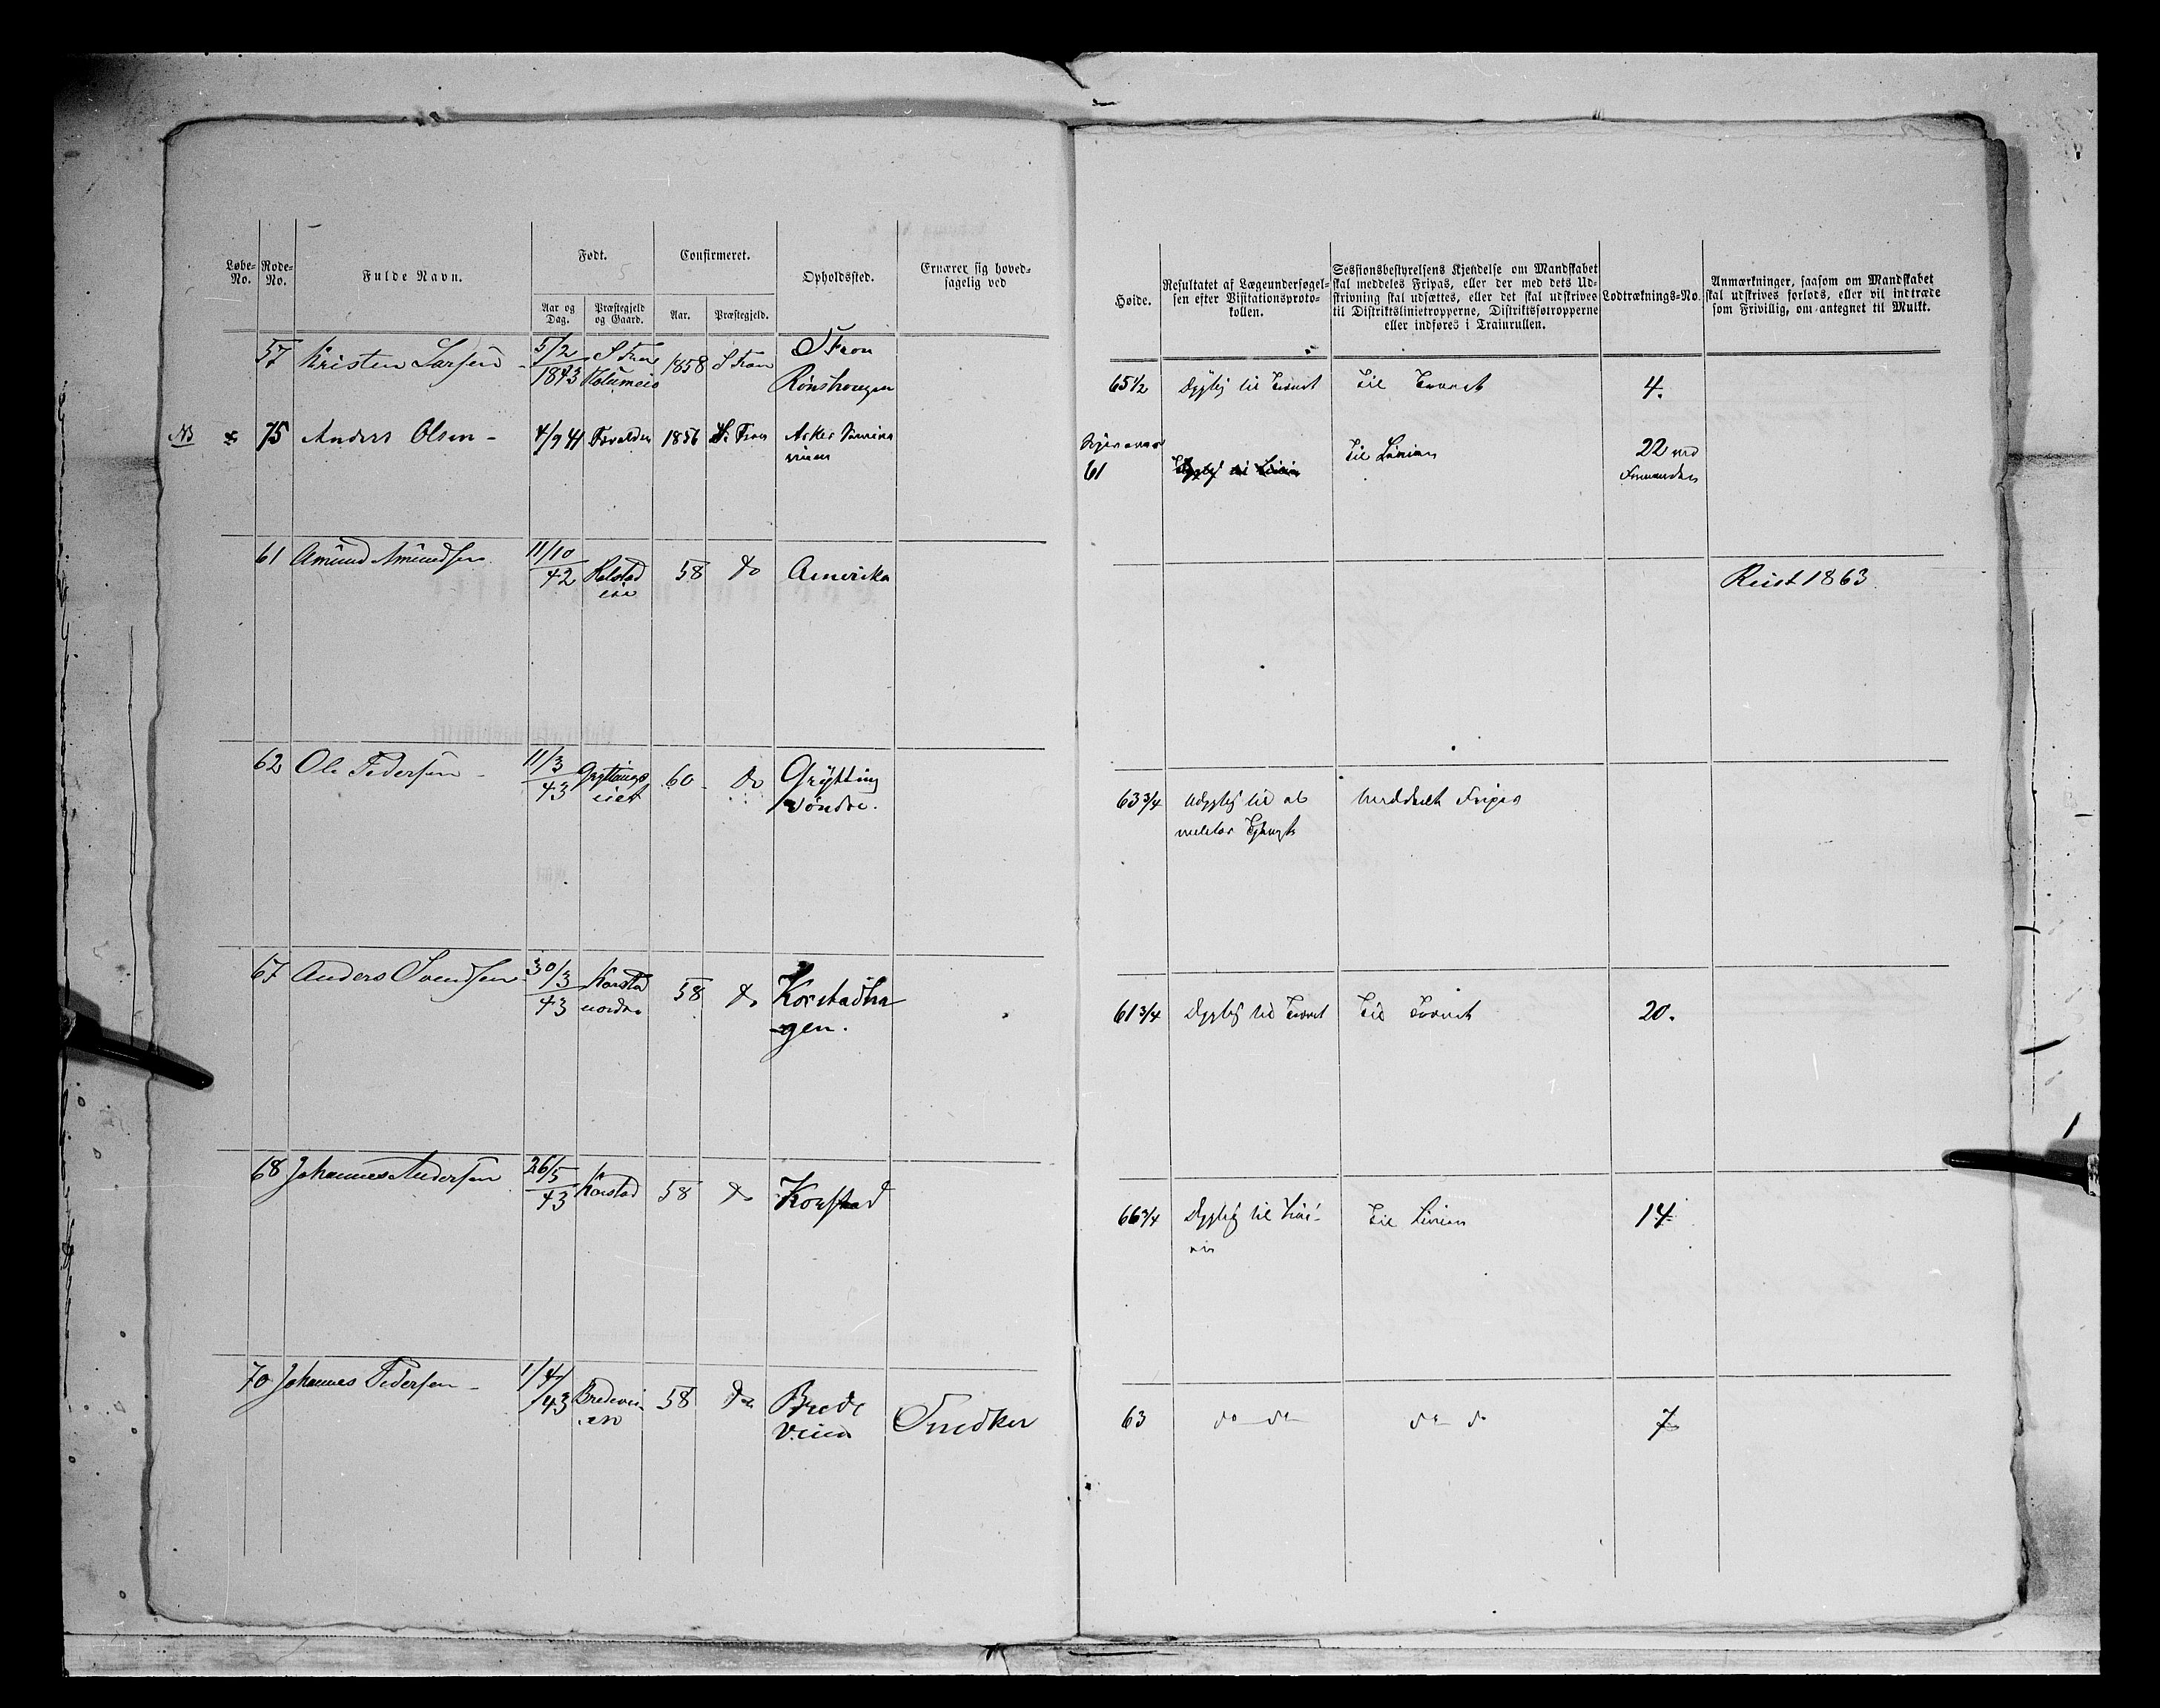 Løbe-No.
Rode-No.
Fulde Navn.
Født.
Aar og Dag.
Præstegjeld og Gaard.
Confirmeret.
Aar.
Præstegjeld.
Opholdssted.
Ernærer sig hovedsagelig ved
Høide.
Resultatet af Lægeundersøgelsen efter Visitationsprotokollen.
Sessionsbestyrelsens Kjendelse om Mandskabet skal meddeles Fripas, eller der med dets Udskrivning skal udsættes, eller det skal udskrives til Distriktslinietropperne, Distriktsfotropperne eller indføres i Trainrullen.
Lodtræknings-No.
Anmærkninger, saasom om Mandskabet skal udskrives forlods, eller vil indtræde som Frivillig, om antegnet til Mulkt.
57 Kristen Larsen 5/2 1843 S Fron 1858 S Fron S Fron
65 1/2 Dygtig til Trænet Til Trænet 4.
NB 75 Anders Olsen - 4/9 41 1856 Fron Asker
61 Til Linien 22 ved
Formanden
61 Amund Amundsen 11/10 42 58 do Amerika
Reist 1863
62 Ole Pedersen - 11/3 43 Gryttings eiet 60 do Grytting søndre.
63 3/4 Udygtig til al Meddelt Fripas
militær Tjeneste
67 Anders Svendsen 30/3 43 Korstad nordre 58 do Korstadhagen.
61 3/4 Dygtig til Trænet Til Trænet 20.
68 Johannes Andersen 26/5 43 Korstad 58 do Korstad
66 3/4 Dygtig til Linien Til Linien 14
70 Johannes Pedersen - 1/4 43 Bredeveien 58 do Brede Veien Snedker
63 do do do do 7